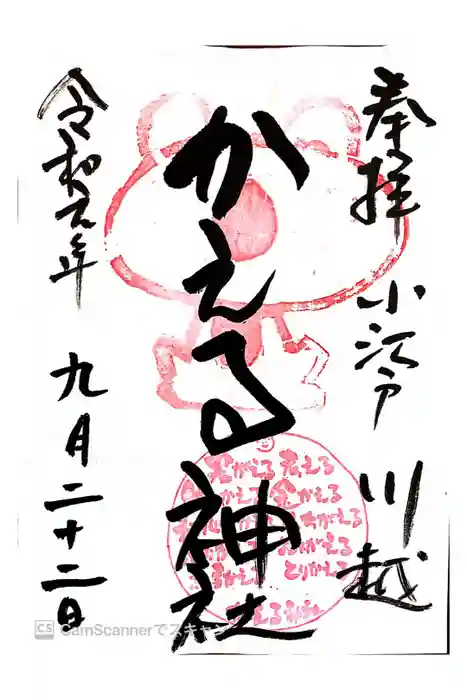 奉拝 小江戸 川越
かえる神社
令和元年 九月二十二日
若がえる 考える
かえる 金かえる
とりかえる
CamScannerでスキャン